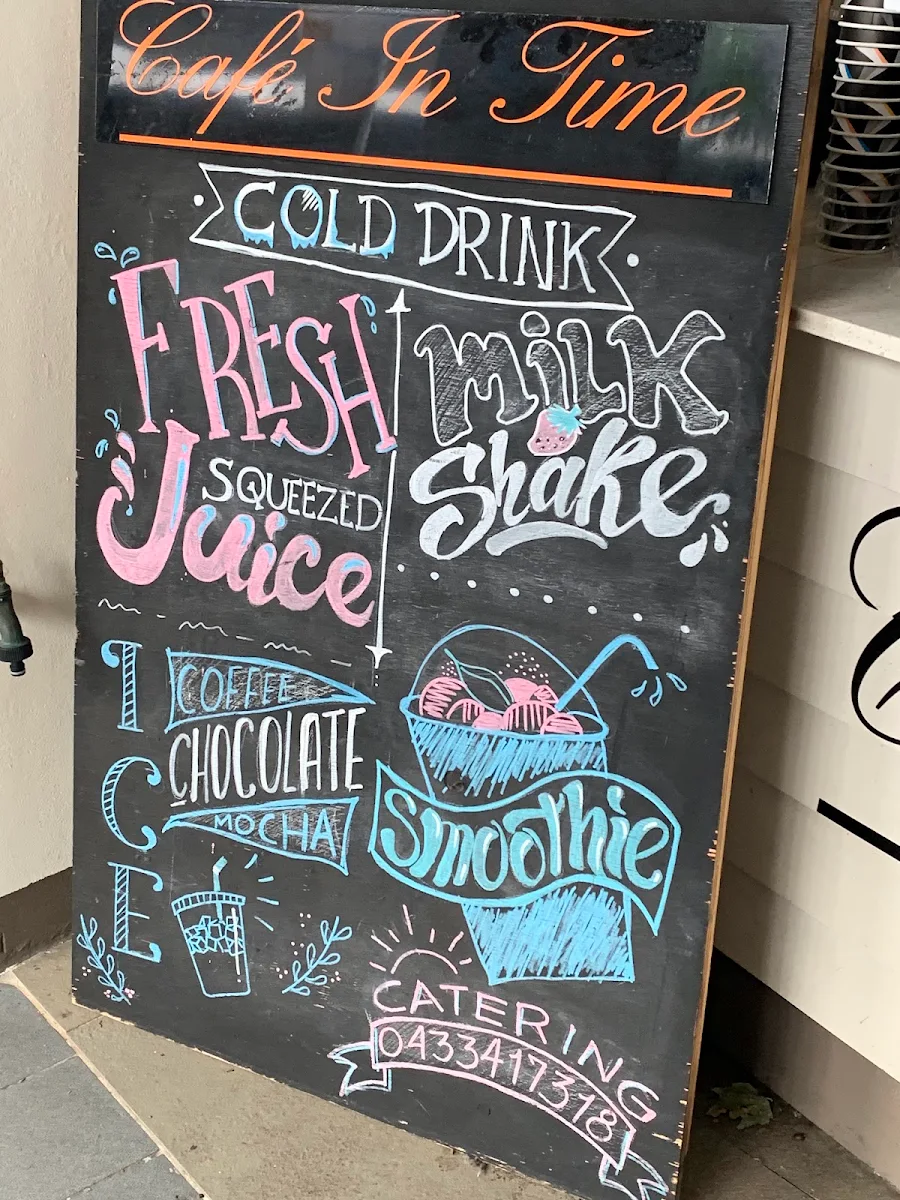 Café In Time
COLD DRINK
FRESH
SQUEEZED
Juice
MiLK
Shake
ICE
COFFEE
CHOCOLATE
MOCHA
Smoothie
CATERING
0433417318